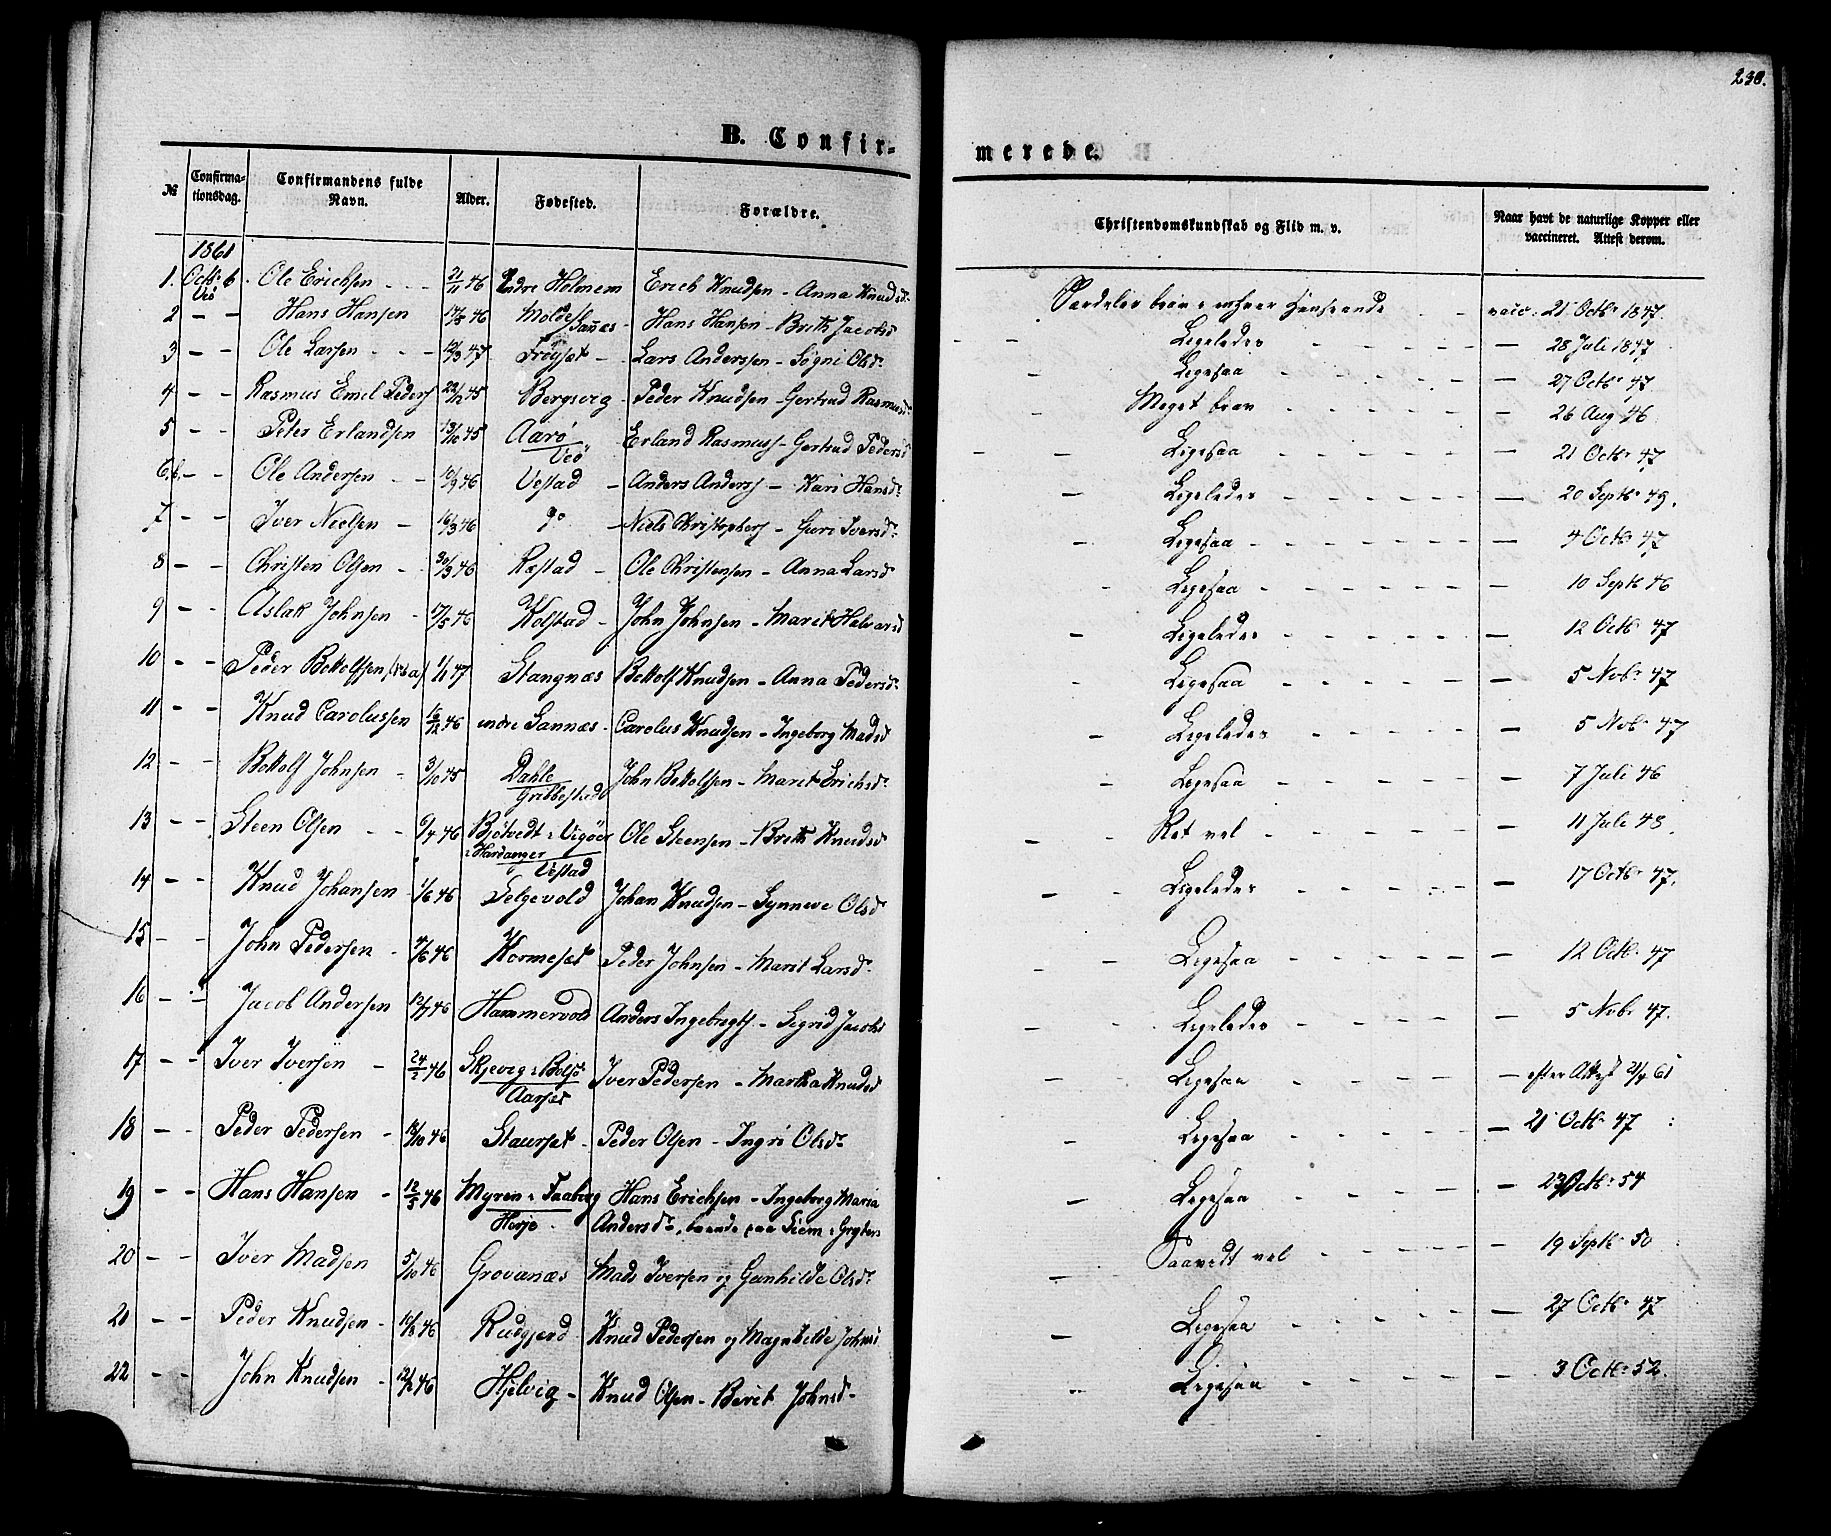 230.
B. Confir-
merede.
№ Confirma- Confirmandens fulde Alder. Fødested. Forældre. Christendomskundskab og Flid m. v. Naar havt de naturlige Kopper eller
tionsdag. Navn. vaccineret. Attest derom.
1861
1. Octb. 6 Ole Erichsen 21/11 46 Indre Holmem Erich Knudsen - Anna Knudsd. Særdeles brav i enhver Henseende - vacc. 21 Octb. 1847.
Veö
2 - - Hans Hansen 46 Molde Hans Hansen - Brith Jacobsd Ligeledes - 28 Juli 1847
Sannæs
3 - - Ole Larsen 12/3 47 Frøyset - Lars Anderssen - Søgni Olsd. Ligesaa - 27 Octb. 47
4 - - Rasmus Emil Peders 22/12 45 Bergsvig - Peder Knudsen - Gertrud Rasmusd. Meget brav - 26 Aug 46
5 - - Peter Erlandsen 13/10 45 Aarö Erland Rasmuss - Gertrud Pedersd Ligesaa - 21 Octb. 47
Veö
6. - - Ole Andersen 10/9 46 Vestad - Anders Anders - Kari Hansd. Ligeledes - 20 Septb. 49.
7 - - Iver Nielsen - 16/3 46 do - Niels Christophers - Guri Iversd. Ligesaa - 4 Octb 47
8 - - Christen Olsen - 30/3 46 Ræstad - Ole Christensen - Anna Larsd Ligesaa - 10 Septb 46
9 - - Aslak Johnsen - 17/5 46 Kolstad - John Johnsen - Marit Halvarsd Ligeledes - 12 Octb. 47
10 - - Peder Bottolfsen 1/1 47 Stangnæs Bottolf Knudsen - Anna Pedersd. Ligesaa - 5 Novb. 47
11 - - Knud Carolussen 16/12 46 indre Sannæs - Carolus Knudsen - Ingeborg Madsd Ligeledes - 5 Novb. 47
12 - - Bottolf Johnsen - 3/10 45 Dahle John Bottolfsen - Marit Erichsd. Ligesaa - 7 Juli 46
Gribbestad
13 - - Steen Olsen - - 6/4 46 Bjötvedt i Vigöer Ole Steensen - Brith Knudsd Ret vel - 11 Juli 48.
i Hardanger
Vestad
14 - - Knud Johansen 1/6 46 Selgevold Johan Knudsen - Synneve Olsd Ligeledes - 17 Octb. 47.
15 - - John Pedersen - 4/6 46 Kormeset Peder Johnsen - Marit Larsd. Ligesaa - 12 Octb. 47
16 - - Jacob Andersen 12/7 46 Hammervold Anders Ingebregts - Sigrid Jacobs Ligeledes - 5 Novb. 47.
17 - - Iver Iversen - 24/2 46 Skjevig i Bolsö Iver Pedersen - Martha Knudsd Ligesaa - efter Attest 2/4 61
Aarset
18 - - Peder Pedersen - 18/10 46 Staurset - Peder Olsen - Ingri Olsd. Ligesaa - 21 Octb. 47
19 - - Hans Hansen - 12/5 46 Myren i Faaberg Hans Erichsen - Ingeborg Maria Ligesaa - 23 Octb. 54
Herje - Andersd., boende paa Liem i Grytten
20 - - Iver Madsen 5/10 46 Grovanæs Mads Iversen og Gunhilde Olsd. Saavidt vel - 19 Septb. 50
21 - - Peder Knudsen - 46 Rødgjerd - Knud Pedersen og Magnhilde Johns Ligesaa - 27 Octb. 47
22 - - John Knudsen - 46 Hjelvig - Knud Olsen - Berit Johnsd. Ligesaa - 3 Octb. 52.